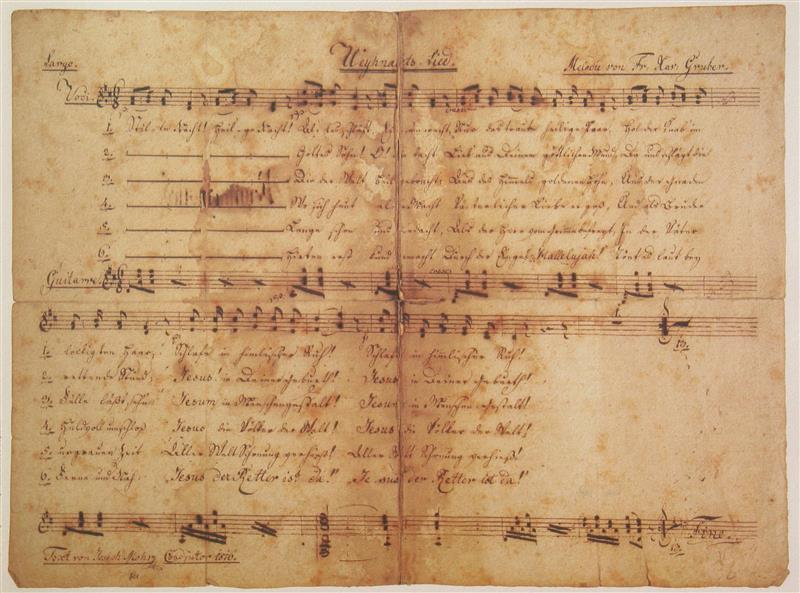 Largo. Weyhnachts-Lied. Melodie von Fr. Xav. Gruber.
Voci.
1. Stille Nacht! Heilige Nacht! Alles schläft; Einsam wacht, Nur das traute heilige Paar. Holder Knab im
2. Gottes Sohn! O! wie lacht Lieb aus Deinem göttlichen Mund, Da uns schlägt die
3. Die der Welt Heil gebracht; Aus des Himmels goldenen Höhn, Aus der Gnaden
4. Wo sich heut alle Macht Väterlicher Liebe ergoß, Und als Bruder
5. Lange schon uns bedacht, Als der Herr vom Grimme befreyt, In der Väter
6. Hirten erst kund gemacht Durch der Engel Hallelujah! Tönt es laut bey
Guitarre
1. lockigten Haar; Schlafe in himlischer Ruh! Schlafe in himlischer Ruh!
2. rettende Stund; Jesus! in Deiner Geburth! Jesus in Deiner Geburth!
3. Fülle läßt sehn Jesum in Menschengestalt! Jesum in Menschengestalt!
4. Huldvoll umschloß Jesus die Völker der Welt! Jesus die Völker der Welt!
5. urgrauen Zeit Aller Welt Schonung verhieß! Aller Welt Schonung verhieß!
6. Ferne und Nah: Jesus der Retter ist da! Jesus der Retter ist da!
Fine.
Text von Joseph Mohr Coadjutor 1816.